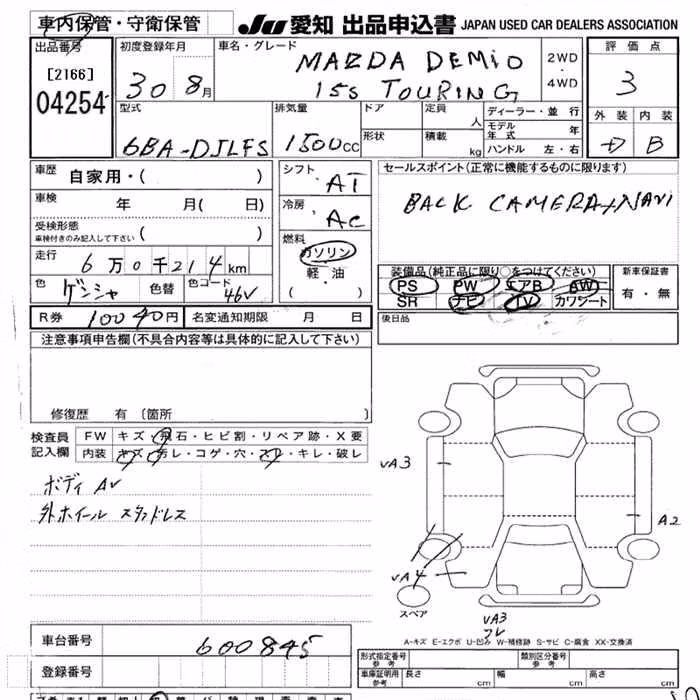 車内保管・守衛保管 JU 愛知 出品申込書 JAPAN USED CAR DEALERS ASSOCIATION
出品番号 [2166] 04254
初度登録年月 30 8月
車名・グレード MAZDA DEMiO 15S TOURING
2WD・4WD
評価点 3
外装 D 内装 B
型式 6BA-DJLFS
排気量 1500cc
ドア 形状
定員 人 積載 kg
ディーラー・並行
モデル年式 年
ハンドル 左・右
車歴 自家用・( )
車検 年 月( 日)
受検形態 車検付きのみ記入して下さい ( )
走行 6万0千214km
色 ゲンシャ 色替 色コード 46V
シフト AT
冷房 AC
燃料 ガソリン 軽・油 ( )
セールスポイント(正常に機能するものに限ります)
BACK CAMERA+NAVI
装備品(純正品に限り○をつけてください)
PS PW エアB AW
SR ナビ TV カワシート
新車保証書 有・無
R券 10040円 名変通知期限 月 日
後日品
注意事項申告欄(不具合内容等は具体的に記入して下さい)
修復歴 有 〔箇所 〕
検査員記入欄
FW キズ・飛石・ヒビ割・リペア跡・X要
内装 キズ・汚レ・コゲ・穴・スレ・キレ・破レ
ボディ AV
外ホイール スタッドレス
VA3
A2
VA4
スペア
VA3
A-キズ E-エクボ U-凹み W-補修跡 S-サビ C-腐食 XX-交換済
車台番号 600845
登録番号
形式指定番号 参考 類別区分番号 参考
車庫証明用 参考 長さ cm 幅 cm 高さ cm